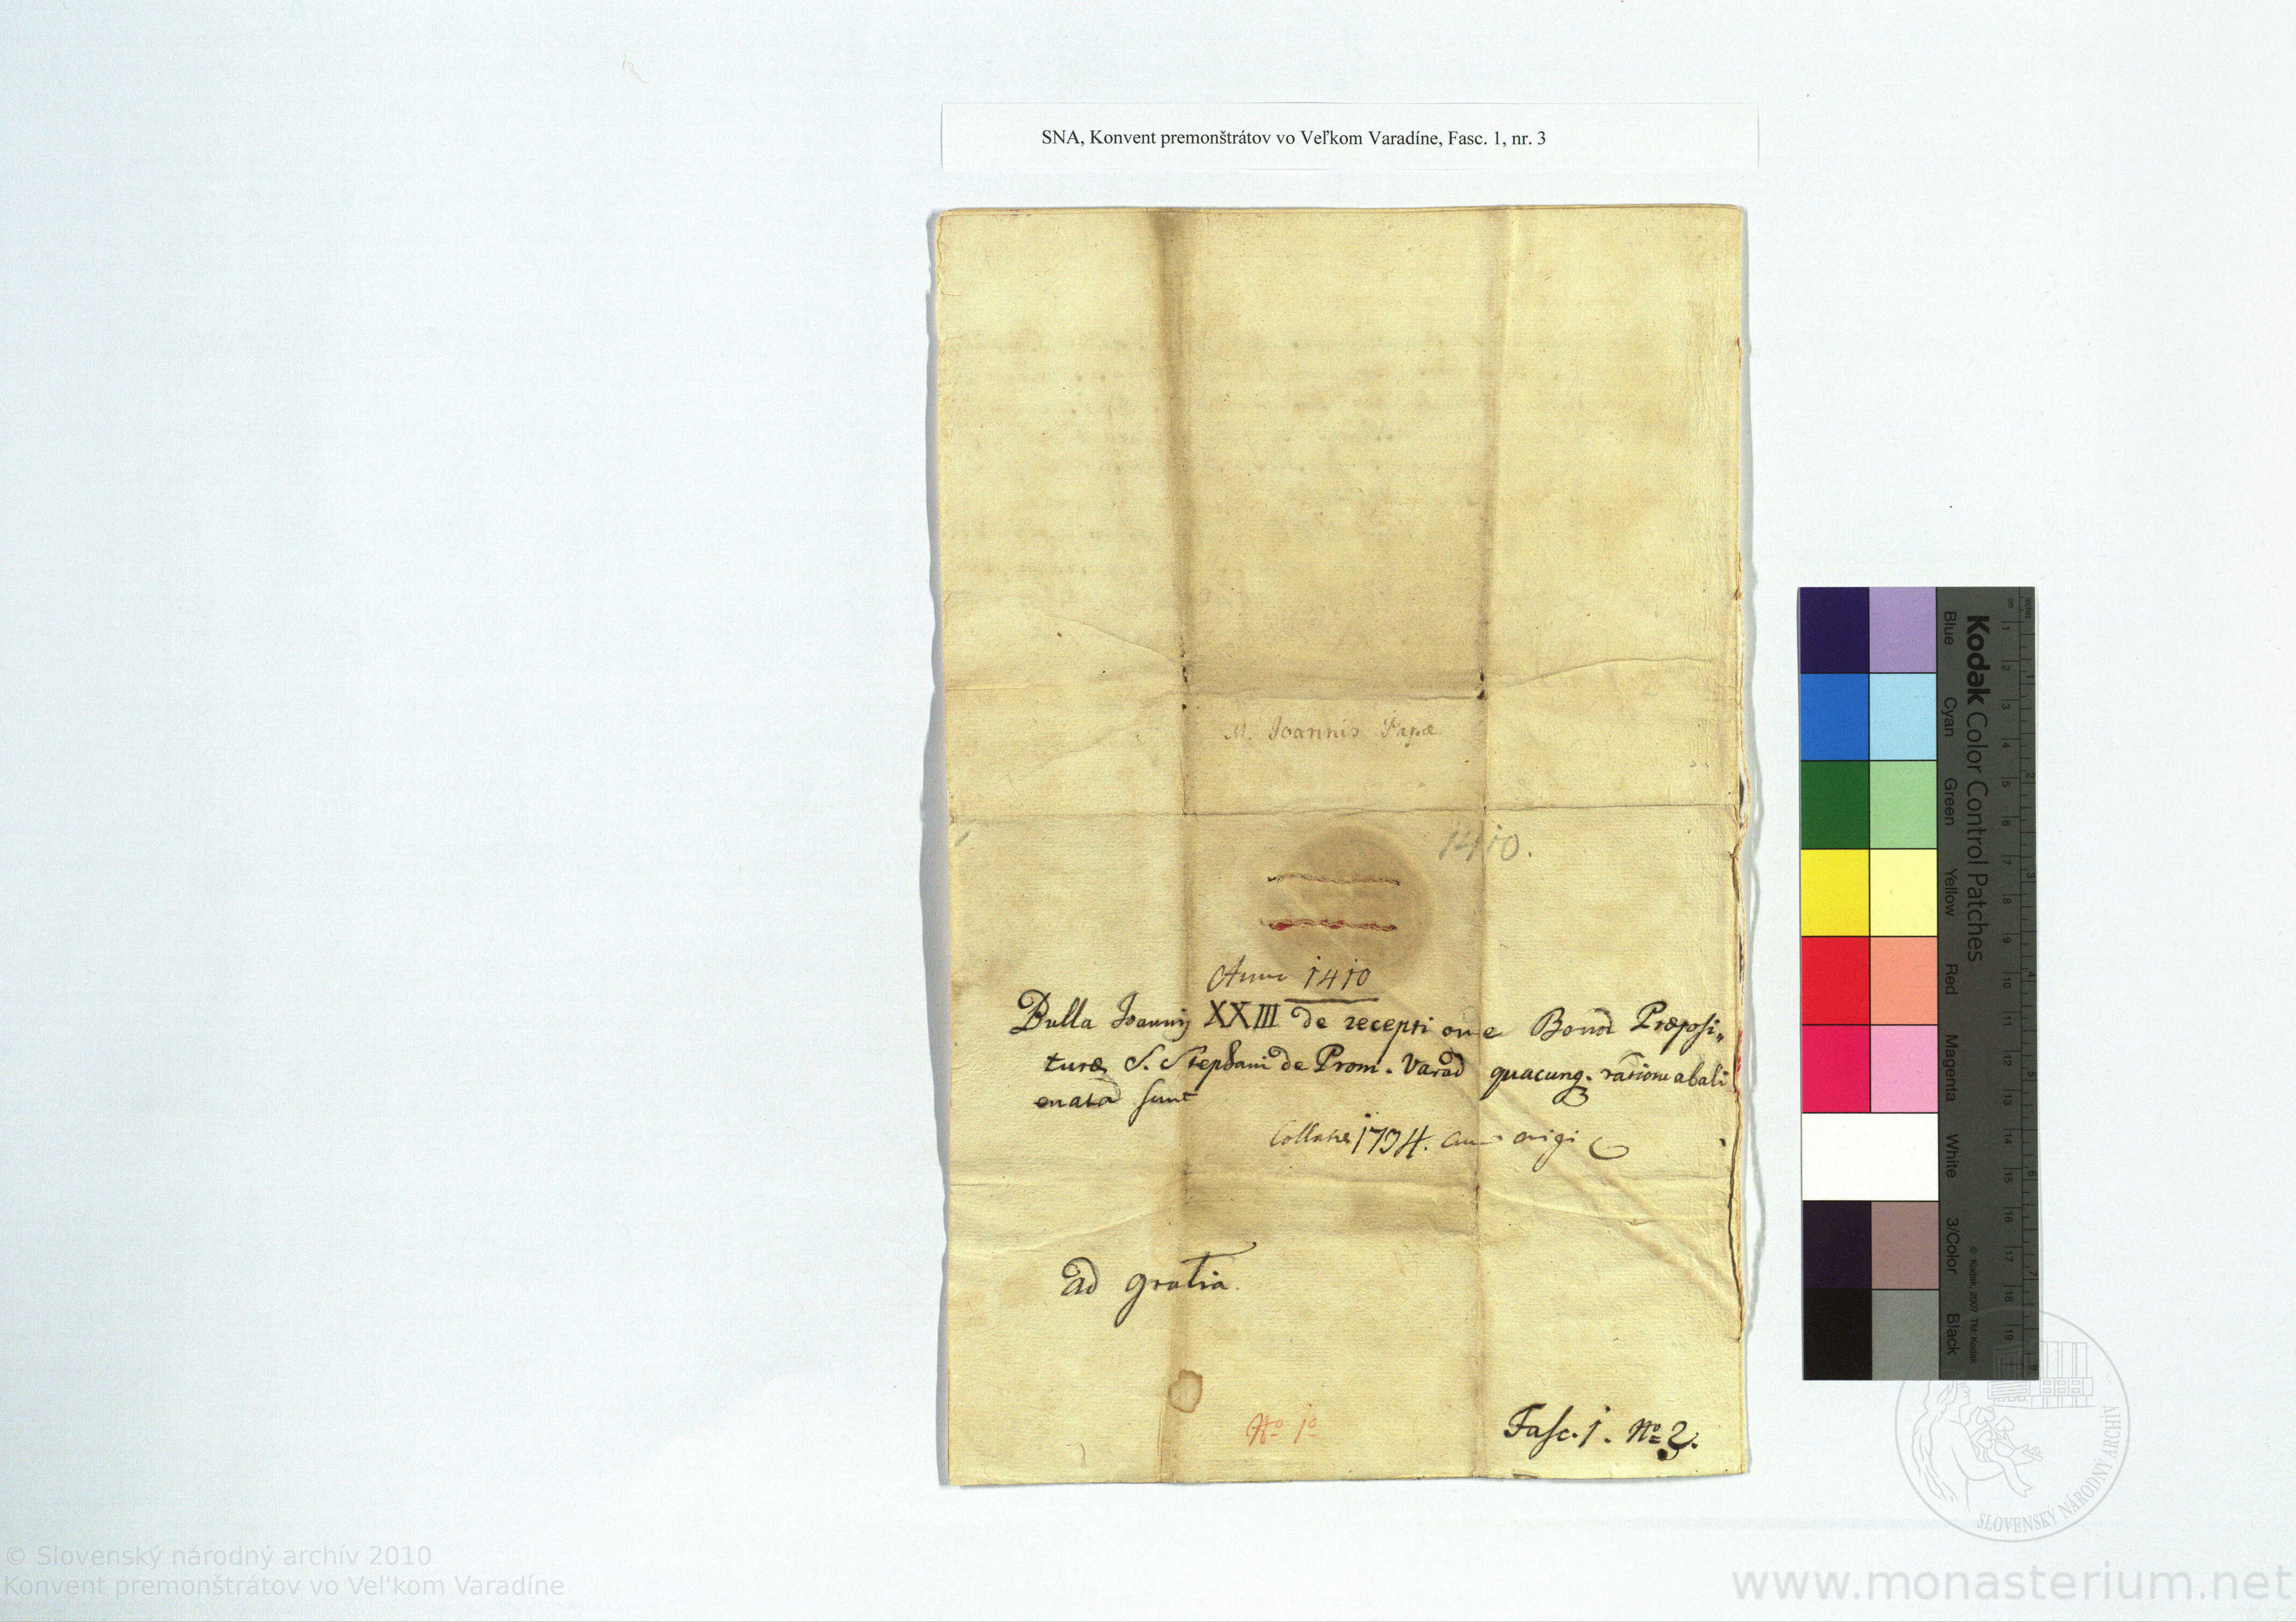 SNA, Konvent premonštrátov vo Veľkom Varadíne, Fasc. 1, nr. 3
M. Joannis Papæ
1410.
Anno 1410
Bulla Joannis XXIII de recepti one Bonor Præposi„
turæ S. Stephani de Prom. Varad quacunq. ratione abali
enata sunt
1734. cum origi
ad gratia.
No 1o
Fasc. 1. No 2.
3
Kodak Color Control Patches
Blue Cyan Green Yellow Red Magenta White 3/Color Black
© Kodak, 2007 TM: Kodak
cm 1 2 3 4 5 6 7 8 9 10 11 12 13 14 15 16 17 18 19
inches 1 2 3 4 5 6 7 8
SLOVENSKÝ NÁRODNÝ ARCHÍV
© Slovenský národný archív 2010
Konvent premonštrátov vo Veľkom Varadíne
www.monasterium.net